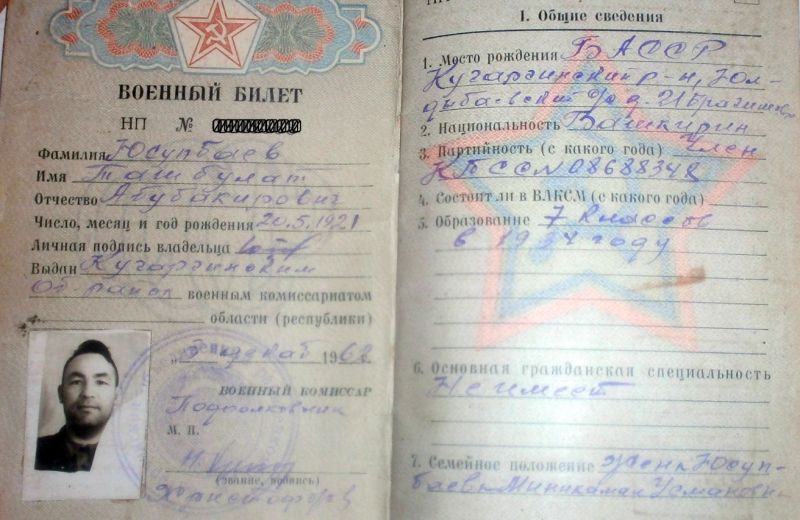 ВОЕННЫЙ БИЛЕТ
НП №
Фамилия Юсупбаев
Имя Ташбулат
Отчество Абубакирович
Число, месяц и год рождения 20.5.1921
Личная подпись владельца
Выдан Кугарчинским
военным комиссариатом
области (республики)
196
ВОЕННЫЙ КОМИССАР
Подполковник
М. П.
(звание, подпись)
1. Общие сведения
1. Место рождения БАССР
Кугарчинский р-н, Юл-
дыбаевский
2. Национальность Башкирин
3. Партийность (с какого года) Член
КПСС N 08688348
4. Состоит ли в ВЛКСМ (с какого года)
5. Образование 7 классов
в году
6. Основная гражданская специальность
Не имеет
7. Семейное положение Жена Юсуп-
баева